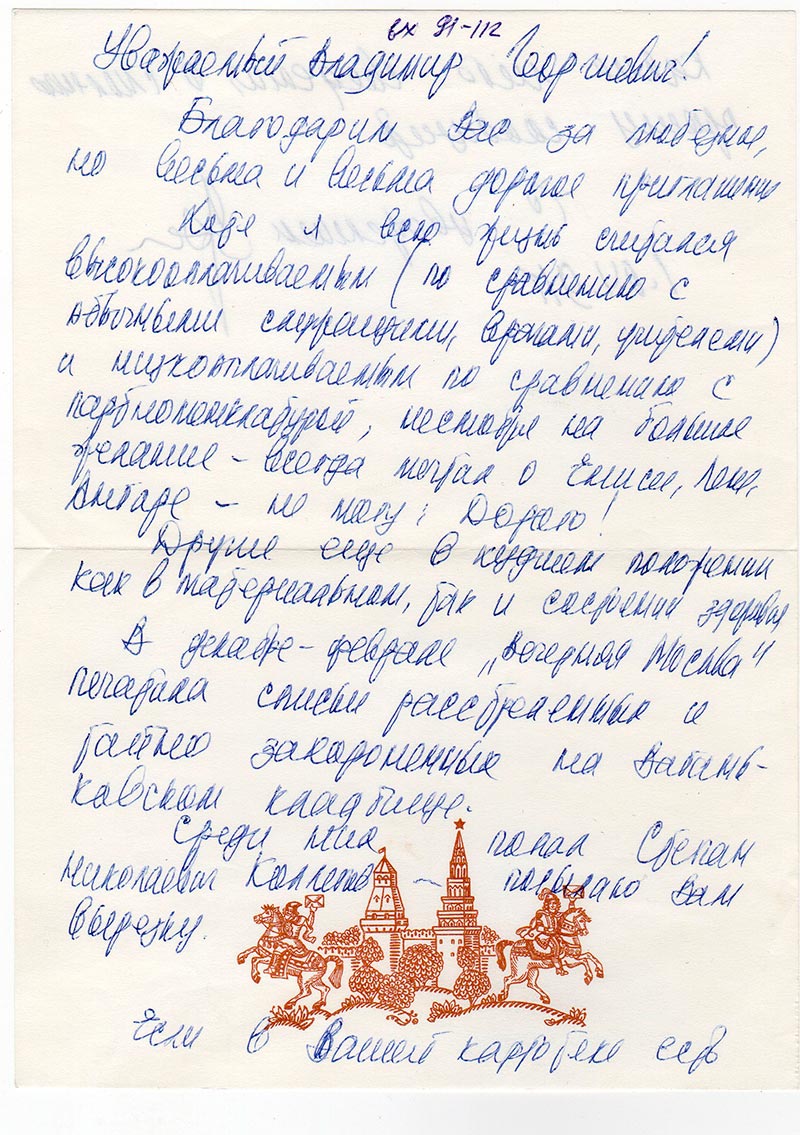 вх 91-112
Уважаемый Владимир Георгиевич!
Благодарим Вас за любезное,
но весьма и весьма дорогое приглашение
Хотя я всю жизнь считался
высокооплачиваемым (по сравнению с
обычными врачами, учителями)
и низкооплачиваемым по сравнению с
партноменклатурой, несмотря на большое
желание – всегда мечтал о Енисее, Лене,
Ангаре – не могу: Дорого!
Другие еще в худшем положении
как в материальном, так и состоянии здоровья
В декабре – феврале „Вечерняя Москва"
печатала списки расстрелянных и
тайно захороненных на Вагань-
ковском кладбище.
Среди них попал Степан
Николаевич – посылаю Вам
вырезку.
Если в Вашей картотеке есть